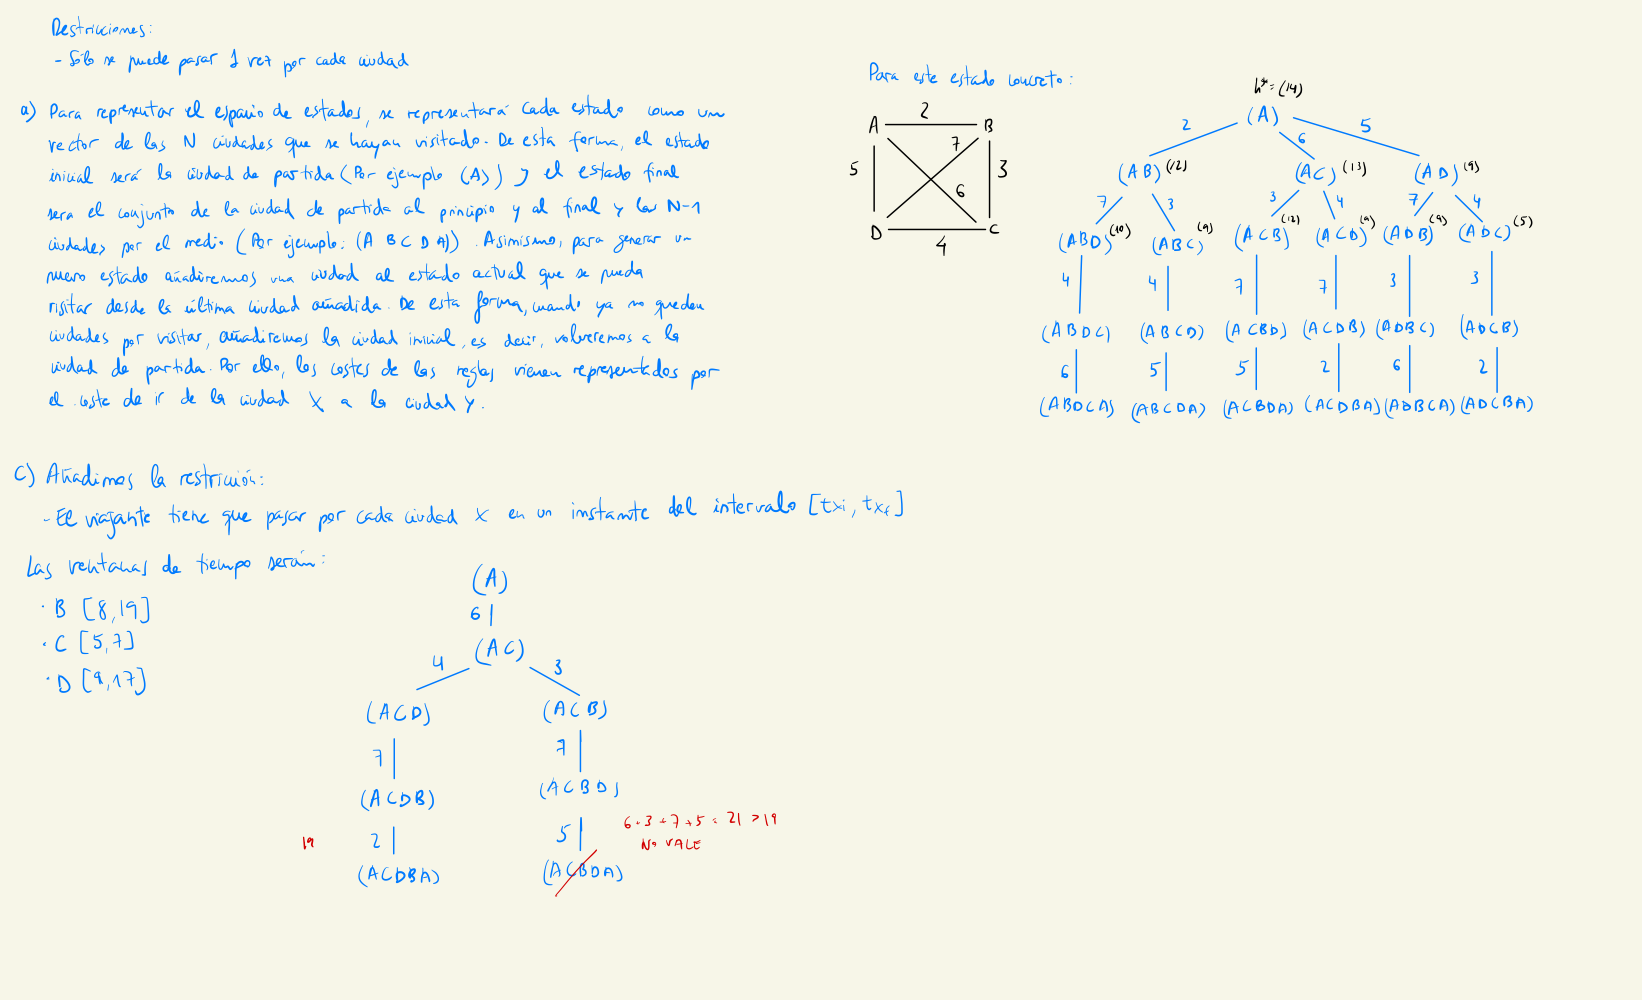 Restricciones:
- Sólo se puede pasar 1 vez por cada ciudad
a) Para representar el espacio de estados, se representará cada estado como un
vector de las N ciudades que se hayan visitado. De esta forma, el estado
inicial será la ciudad de partida (Por ejemplo (A)) y el estado final
sera el conjunto de la ciudad de partida al principio y al final y las N-1
ciudades por el medio (Por ejemplo: (A B C D A)). Asimismo, para generar un
nuevo estado añadiremos una ciudad al estado actual que se pueda
visitar desde la última ciudad añadida. De esta forma, cuando ya no queden
ciudades por visitar, añadiremos la ciudad inicial, es decir, volveremos a la
ciudad de partida. Por ello, los costes de las reglas vienen representados por
el coste de ir de la ciudad X a la ciudad Y.
Para este estado concreto:
A 2 B
5 7 3
6
D 4 C
h* = (14)
(A)
2 6 5
(AB) (12) (AC) (13) (AD) (9)
7 3 3 4 7 4
(ABD) (10) (ABC) (9) (ACB) (12) (ACD) (9) (ADB) (9) (ADC) (5)
4 4 7 7 3 3
(ABDC) (ABCD) (ACBD) (ACDB) (ADBC) (ADCB)
6 5 5 2 6 2
(ABDCA) (ABCDA) (ACBDA) (ACDBA) (ADBCA) (ADCBA)
C) Añadimos la restricción:
- El viajante tiene que pasar por cada ciudad X en un instante del intervalo [txi, txf]
Las ventanas de tiempo serán:
· B [8,19]
· C [5,7]
· D [9,17]
(A)
6
(AC)
4 3
(ACD) (ACB)
7 7
(ACDB) (ACBD)
19 2 5 6+3+7+5 = 21 > 19
NO VALE
(ACDBA) (ACBDA)